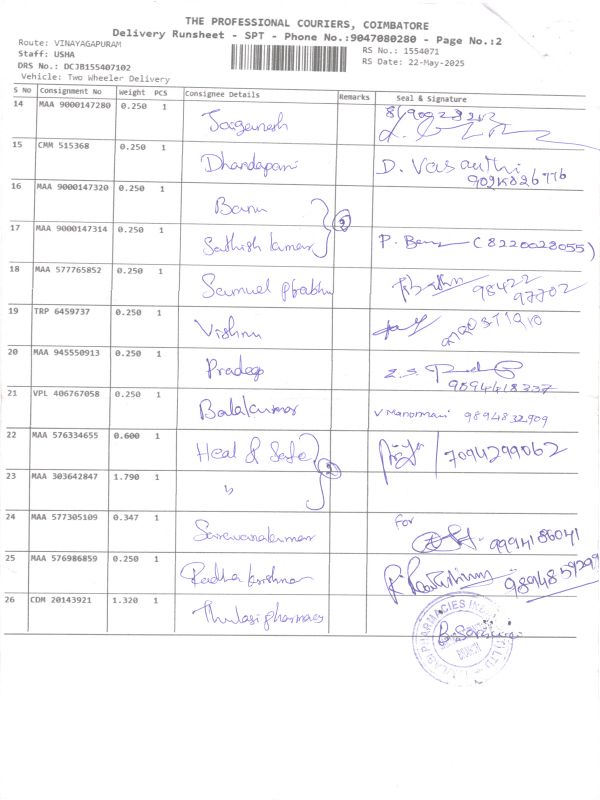 THE PROFESSIONAL COURIERS, COIMBATORE
Delivery Runsheet - SPT - Phone No.:9047080280 - Page No.:2
Route: VINAYAGAPURAM
Staff: USHA
DRS No.: DCJB155407102
Vehicle: Two Wheeler Delivery
RS No.: 1554071
RS Date: 22-May-2025
S No Consignment No Weight PCS Consignee Details Remarks Seal & Signature
14 MAA 9000147280 0.250 1 Jaaganesh
15 CMM 515368 0.250 1 Dhandapani D. Vasanthi
16 MAA 9000147320 0.250 1 Banu
2
17 MAA 9000147314 0.250 1 Sathish kumar P. Banu (8220028055)
18 MAA 577765852 0.250 1 Samuel Prabhu 98422
97702
19 TRP 6459737 0.250 1 Vishnu
20 MAA 945550913 0.250 1 Pradeep
9894418337
21 VPL 406767058 0.250 1 Balakumar V Manonmani 9894832909
22 MAA 576334655 0.600 1 Heal & Safe 7094299062
2
23 MAA 303642847 1.790 1 "
24 MAA 577305109 0.347 1 Saravanakumar For
9994186041
25 MAA 576986859 0.250 1 Radha krishnan
26 CDM 20143921 1.320 1 Thulasi pharmacy